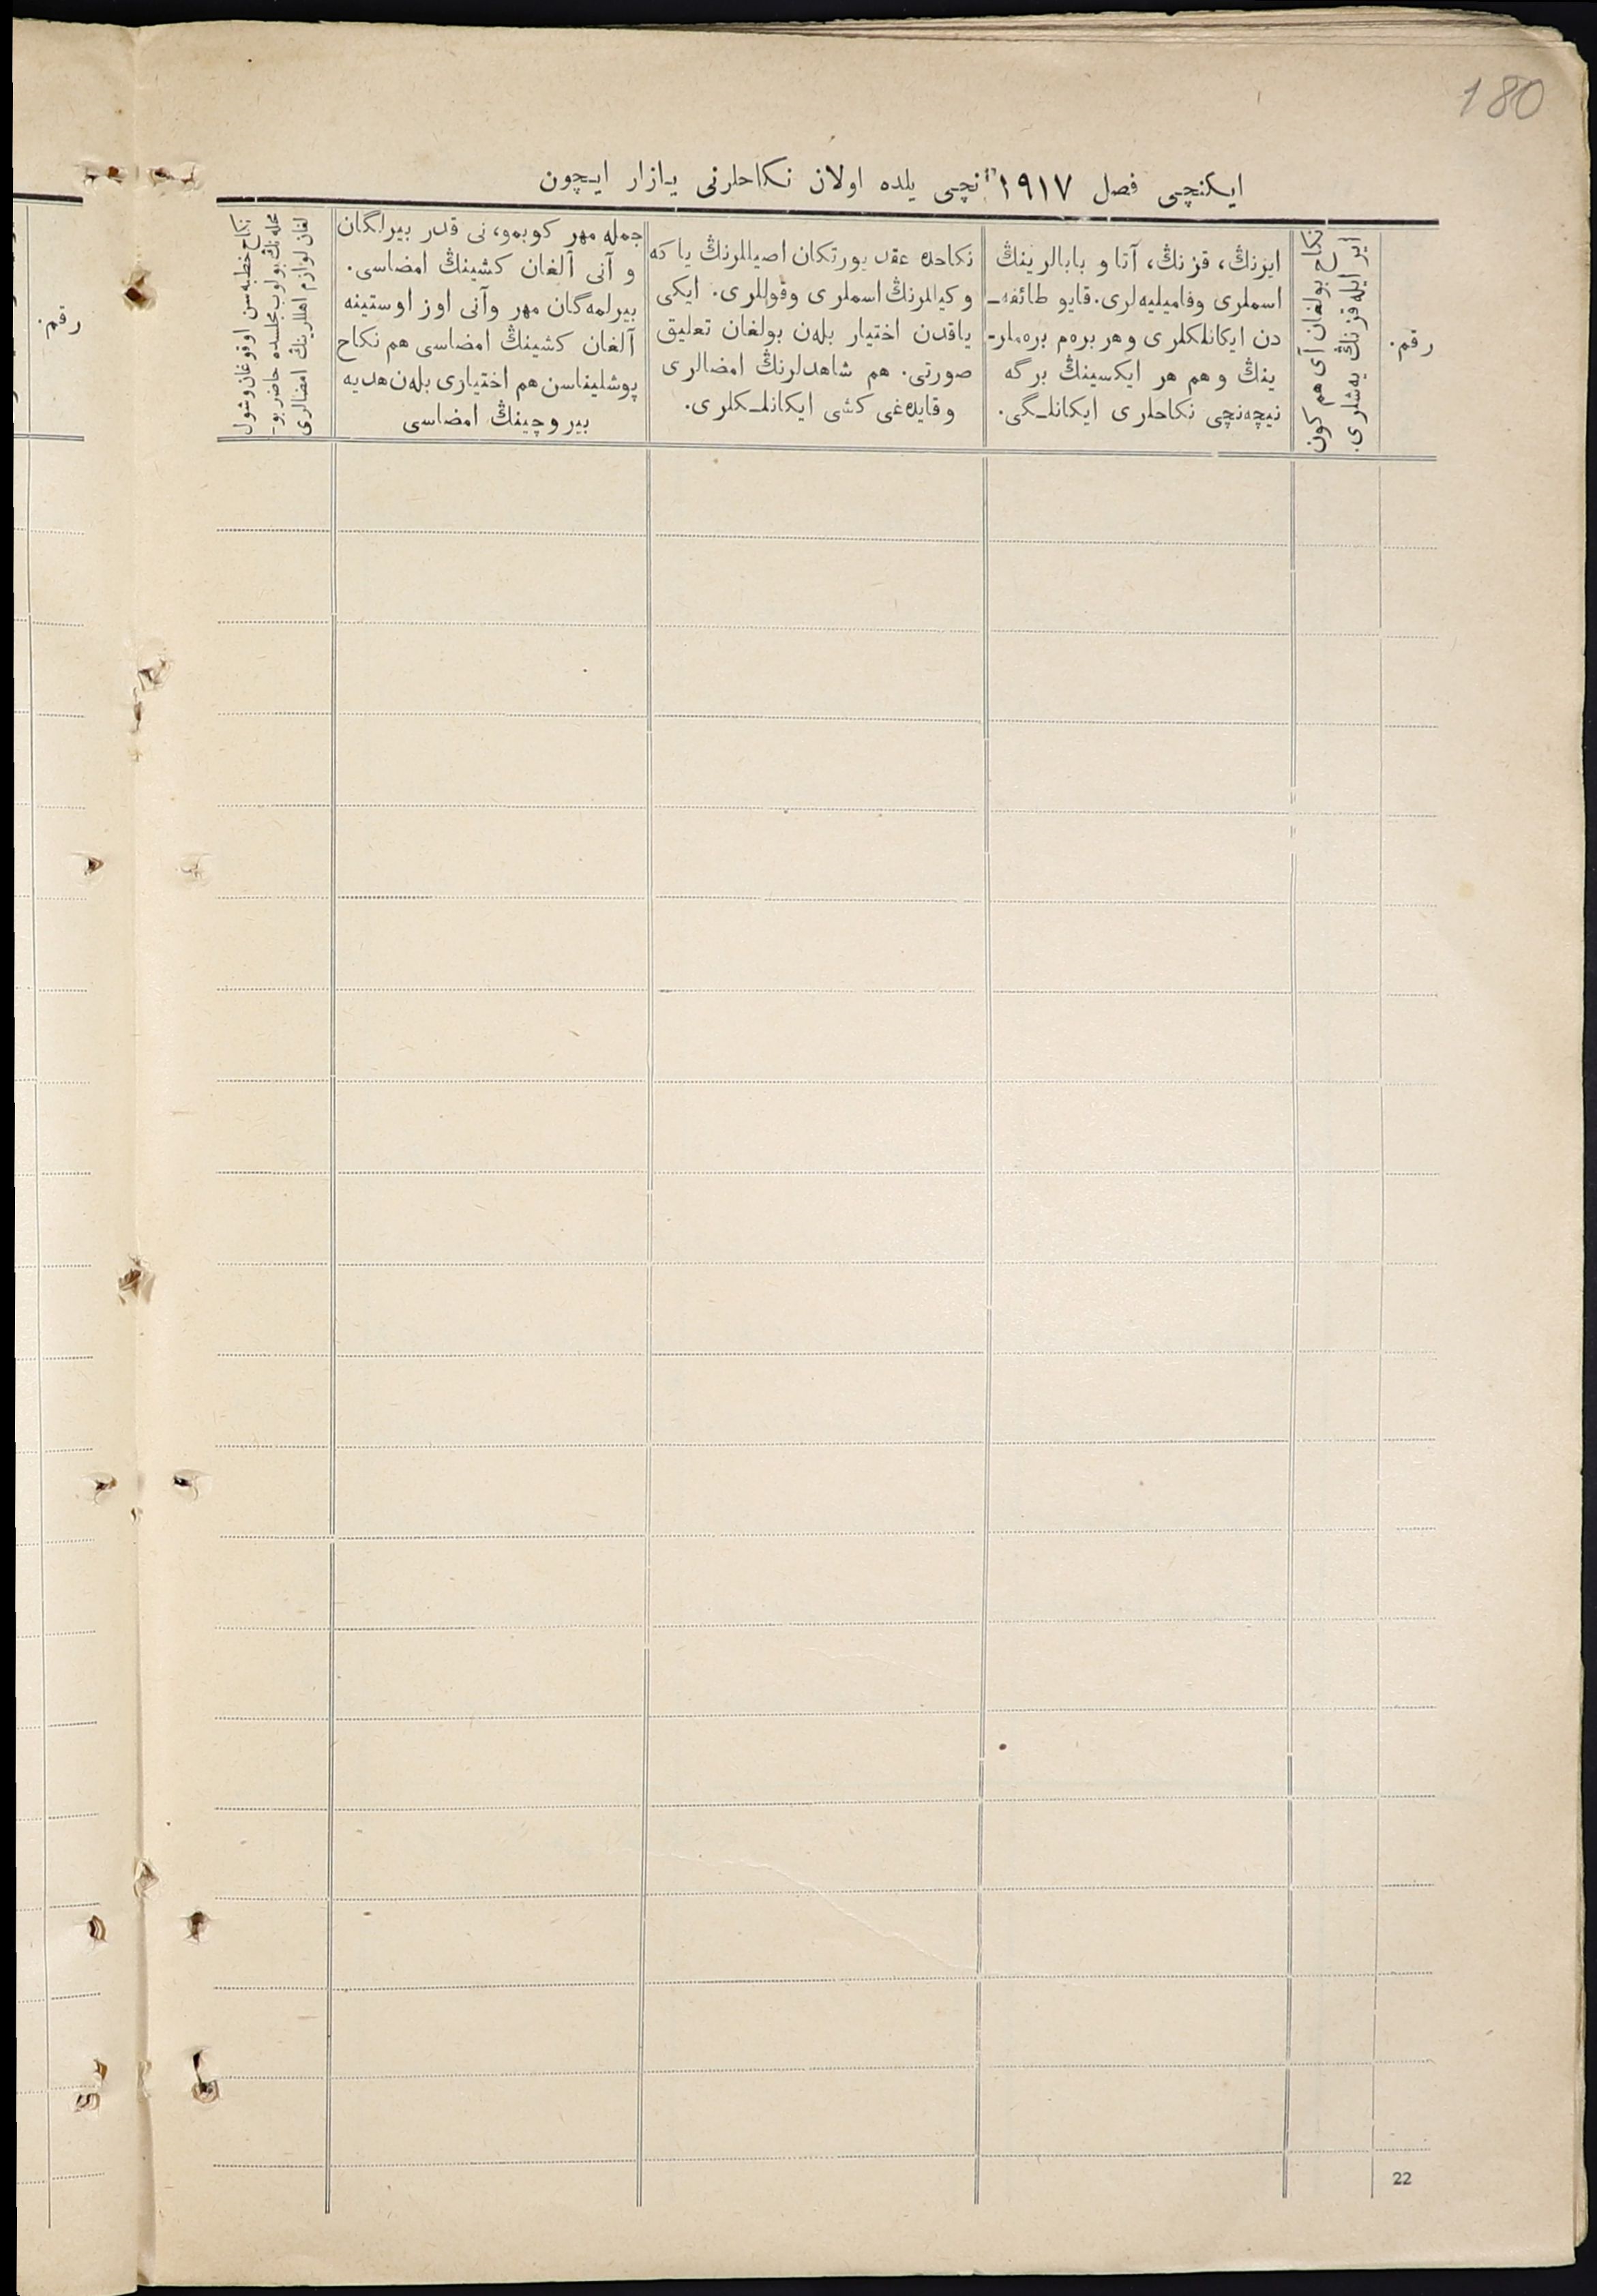 180
ایکنچی فصل ١٩١٧ نچی یلده اولان نکاحلرنی یازار ایچون
رقم.
نکاح بولغان آی هم کون
ایر ایله قزنڭ یه‌شلری.
ایرنڭ، قزنڭ، آتا و بابالرینڭ
اسملری وفامیلیه‌لری. قایو طائفه‌ـ
دن ایکانلکلری و هر بره‌م بره‌ملرـ
ینڭ و هم هر ایکسینڭ برگه
نیچه‌نچی نکاحلری ایکانلـگی.
نکاحده عقد یورتکان اصیللرنڭ یا که
وکیللرنڭ اسملری وقوللری. ایکی
یاقدن اختیار بله‌ن بولغان تعلیق
صورتی. هم شاهدلرنڭ امضالری
وقایده‌غی کشی ایکانلـکلری.
جمله مهر کوبمو، نی قدر بیرلگان
و آنی آلغان کشینڭ امضاسی.
بیرلمه‌گان مهر وآنی اوز اوستینه
آلغان کشینڭ امضاسی هم نکاح
پوشلیناسن هم اختیاری بله‌ن هدیه
بیروچینڭ امضاسی
نکاح خطبه‌سن اوقوغان وشول
محله‌نڭ بولوب مجلسده حاضر بوـ
لغان لوازم اهللرینڭ امضالری
رقم.
22